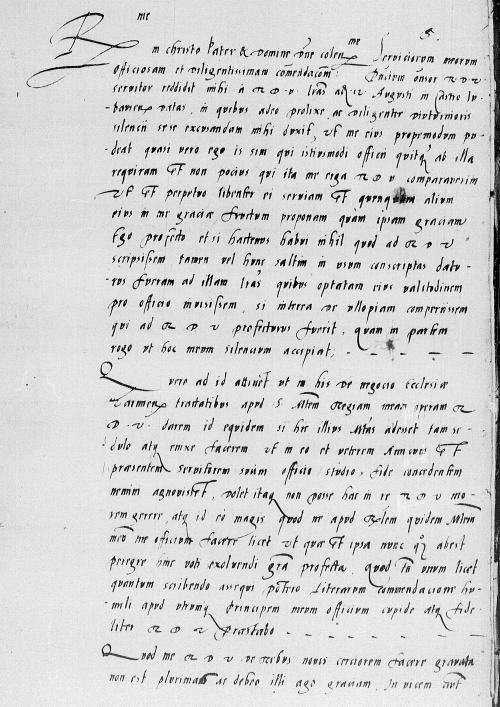 R me 5.
in christo Pater & Domine dne colen me Serviciorum meorum
officiosam et diligentissimam comendacom: Puerum R D V
servitor reddidit mihi à R D V lras 12 Augusti in Castro lu-
datas, in quibus adeo prolixe, ac diligenter diuturnioris
silencii sese excusandam mihi duxit, ut me eius propemodum pu-
deat quasi vero ego is sim qui istiusmodi officii ab illa
requiram et non pocius qui ita me erga R D V comparaverim
ut et perpetuo libenter ei serviam et quenquam alium
eius in me graciæ fructum proponam quàm ipsam graciam
Ego profecto etsi hactenus habui nihil quod ad R D V
scripsissem tamen vel hunc saltim in usum conscriptas datu-
rus fueram ad illam lras quibus optatam eius valitudinem
pro officio invisissem, si interea de ullo comperissem
qui ad R D V profecturus fuerit, quam in partem
rogo ut hoc meum silencium accipiat,
Quere ad id attinet ut in his de negocio Ecclesiæ
Varmien tractatibus apud S Mtem Regiam meam operam R
D V darem id equidem si hic illius Mtas adesset tam se-
dulo atq enixe facerem ut in eo et veterem Amicum et
præsentem servitorem suum officio studio, fide concedentem
nemini agnovisset, dolet itaq non posse hac in re R D V mo-
rem gerere, atq id eo magis quod ne apud Rlem quidem Mtem
meu me officium facere licet ut quæ et ipsa nunc abest
peregre hinc voti exolvendi gra profecta, quod tn unum licet
quantum scribendo assequi potero literarum commendacione hu-
mili apud utrumq Principem meum officium cupide atq fide-
liter R D V præstabo
Quod me R D V de rebus novis cerciorem facere gravata
non est plurimam ac debeo illi ago graciam, In vicem